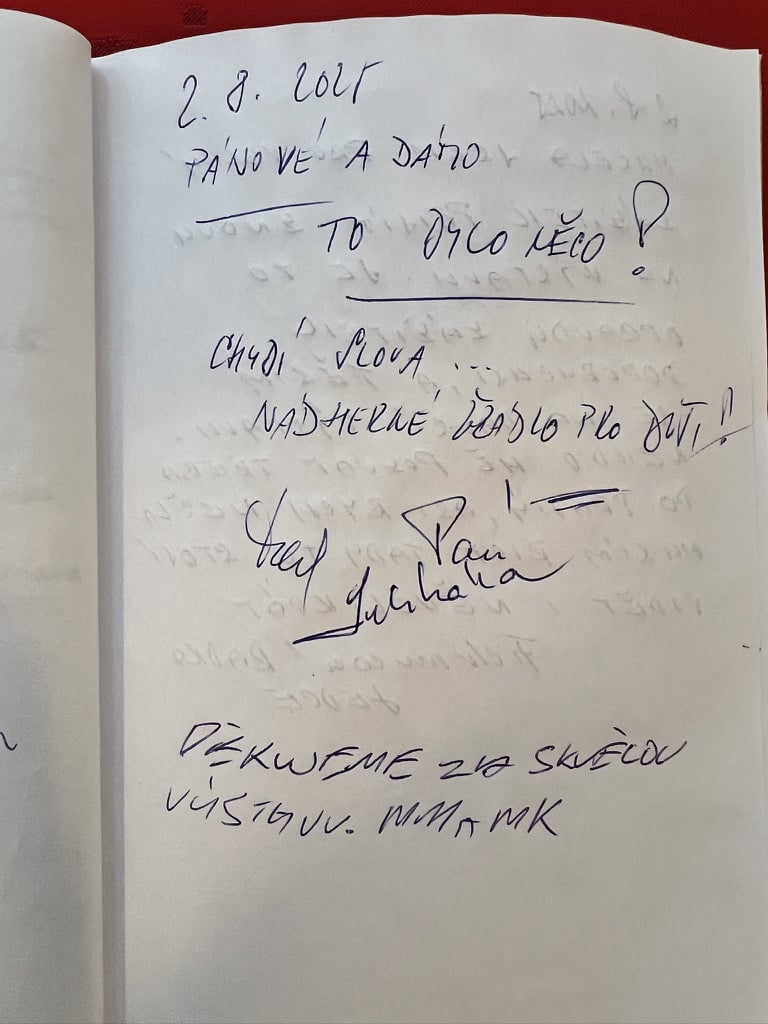 2. 8. 2025
PÁNOVÉ A DÁMO
TO BYLO NĚCO!
CHYBÍ SLOVA ...
NÁDHERNÉ PRO DĚTI!!
DĚKUJEME ZA SKVĚLOU
VÝSTAVU. MM A MK